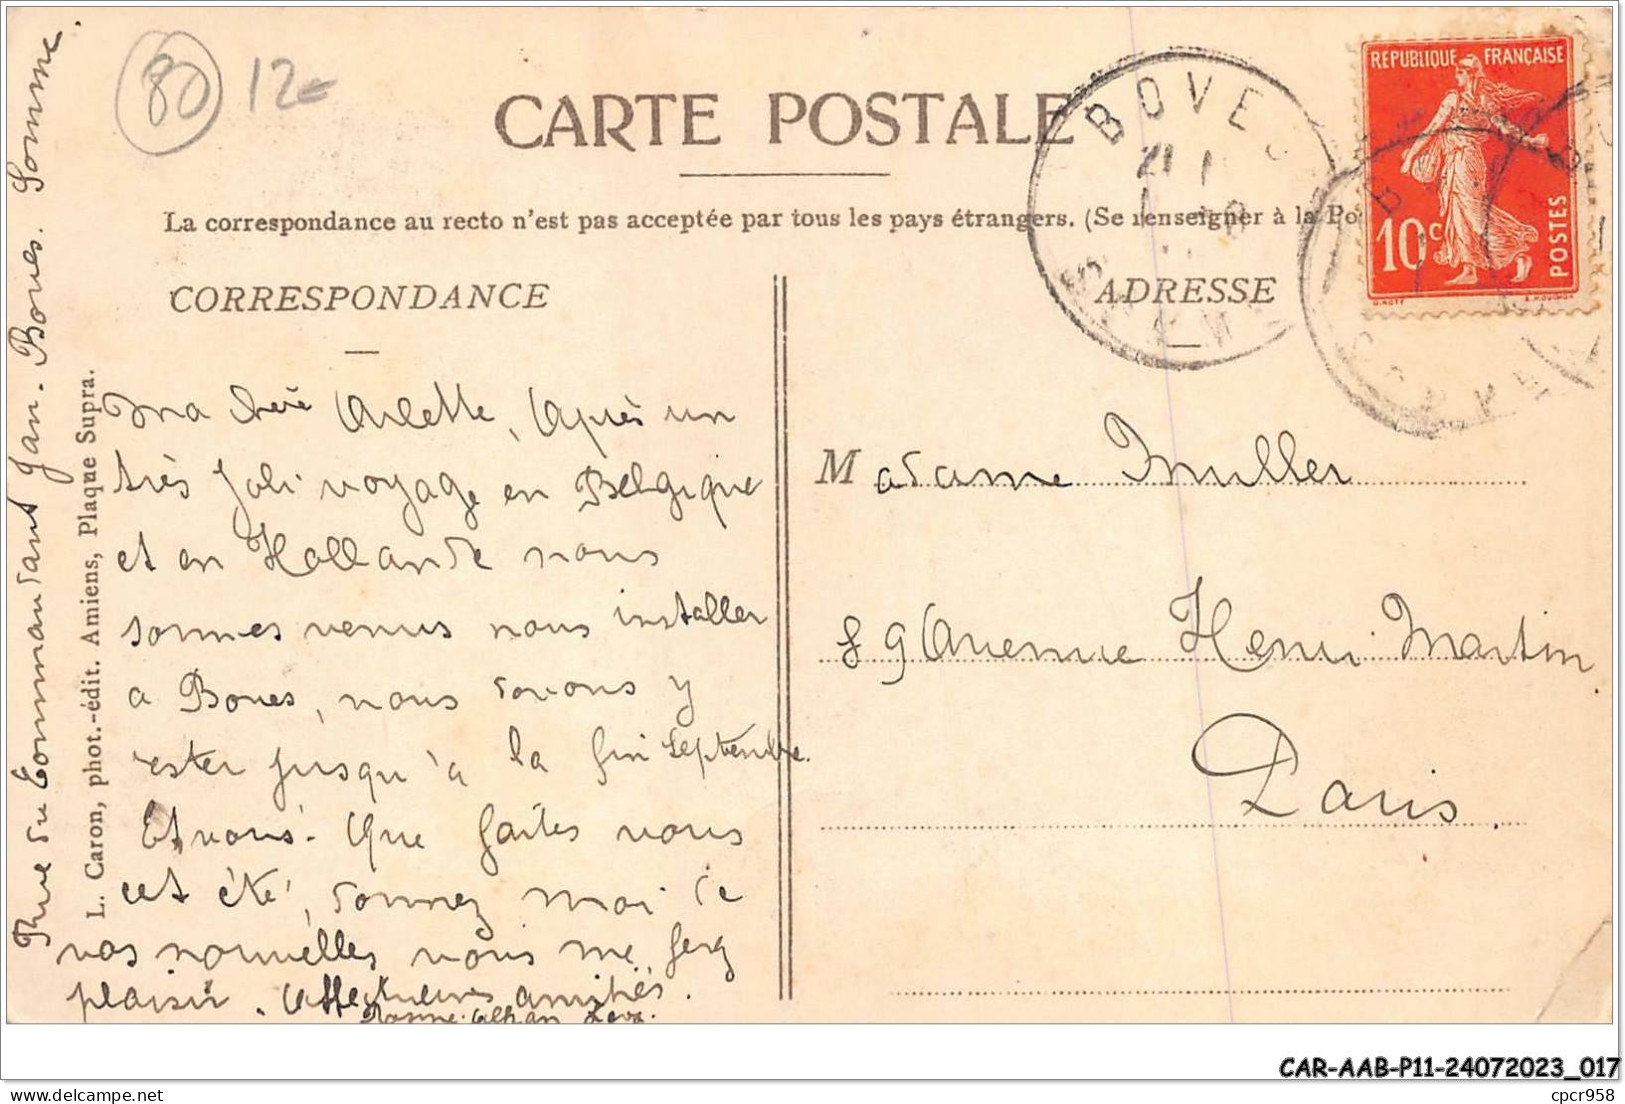 80 12€
CARTE POSTALE
La correspondance au recto n'est pas acceptée par tous les pays étrangers. (Se renseigner à la Po
CORRESPONDANCE
ADRESSE
BOVES
21
SOMME
REPUBLIQUE FRANÇAISE
10c
POSTES
Rue du Commandant Jan - Boves. Somme.
L. Caron, phot.-édit. Amiens, Plaque Supra.
Ma chère Arlette, Après un
très joli voyage en Belgique
et en Hollande nous
sommes venus nous installer
a Boves, nous devons y
rester jusqu'à la fin septembre.
Et vous. Que faites vous
cet été, donnez moi de
vos nouvelles vous me ferez
plaisir. Affectueuses amitiés.
Madame Muller
89 Avenue Henri Martin
Paris.
CAR-AAB-P11-24072023_017
cpcr958